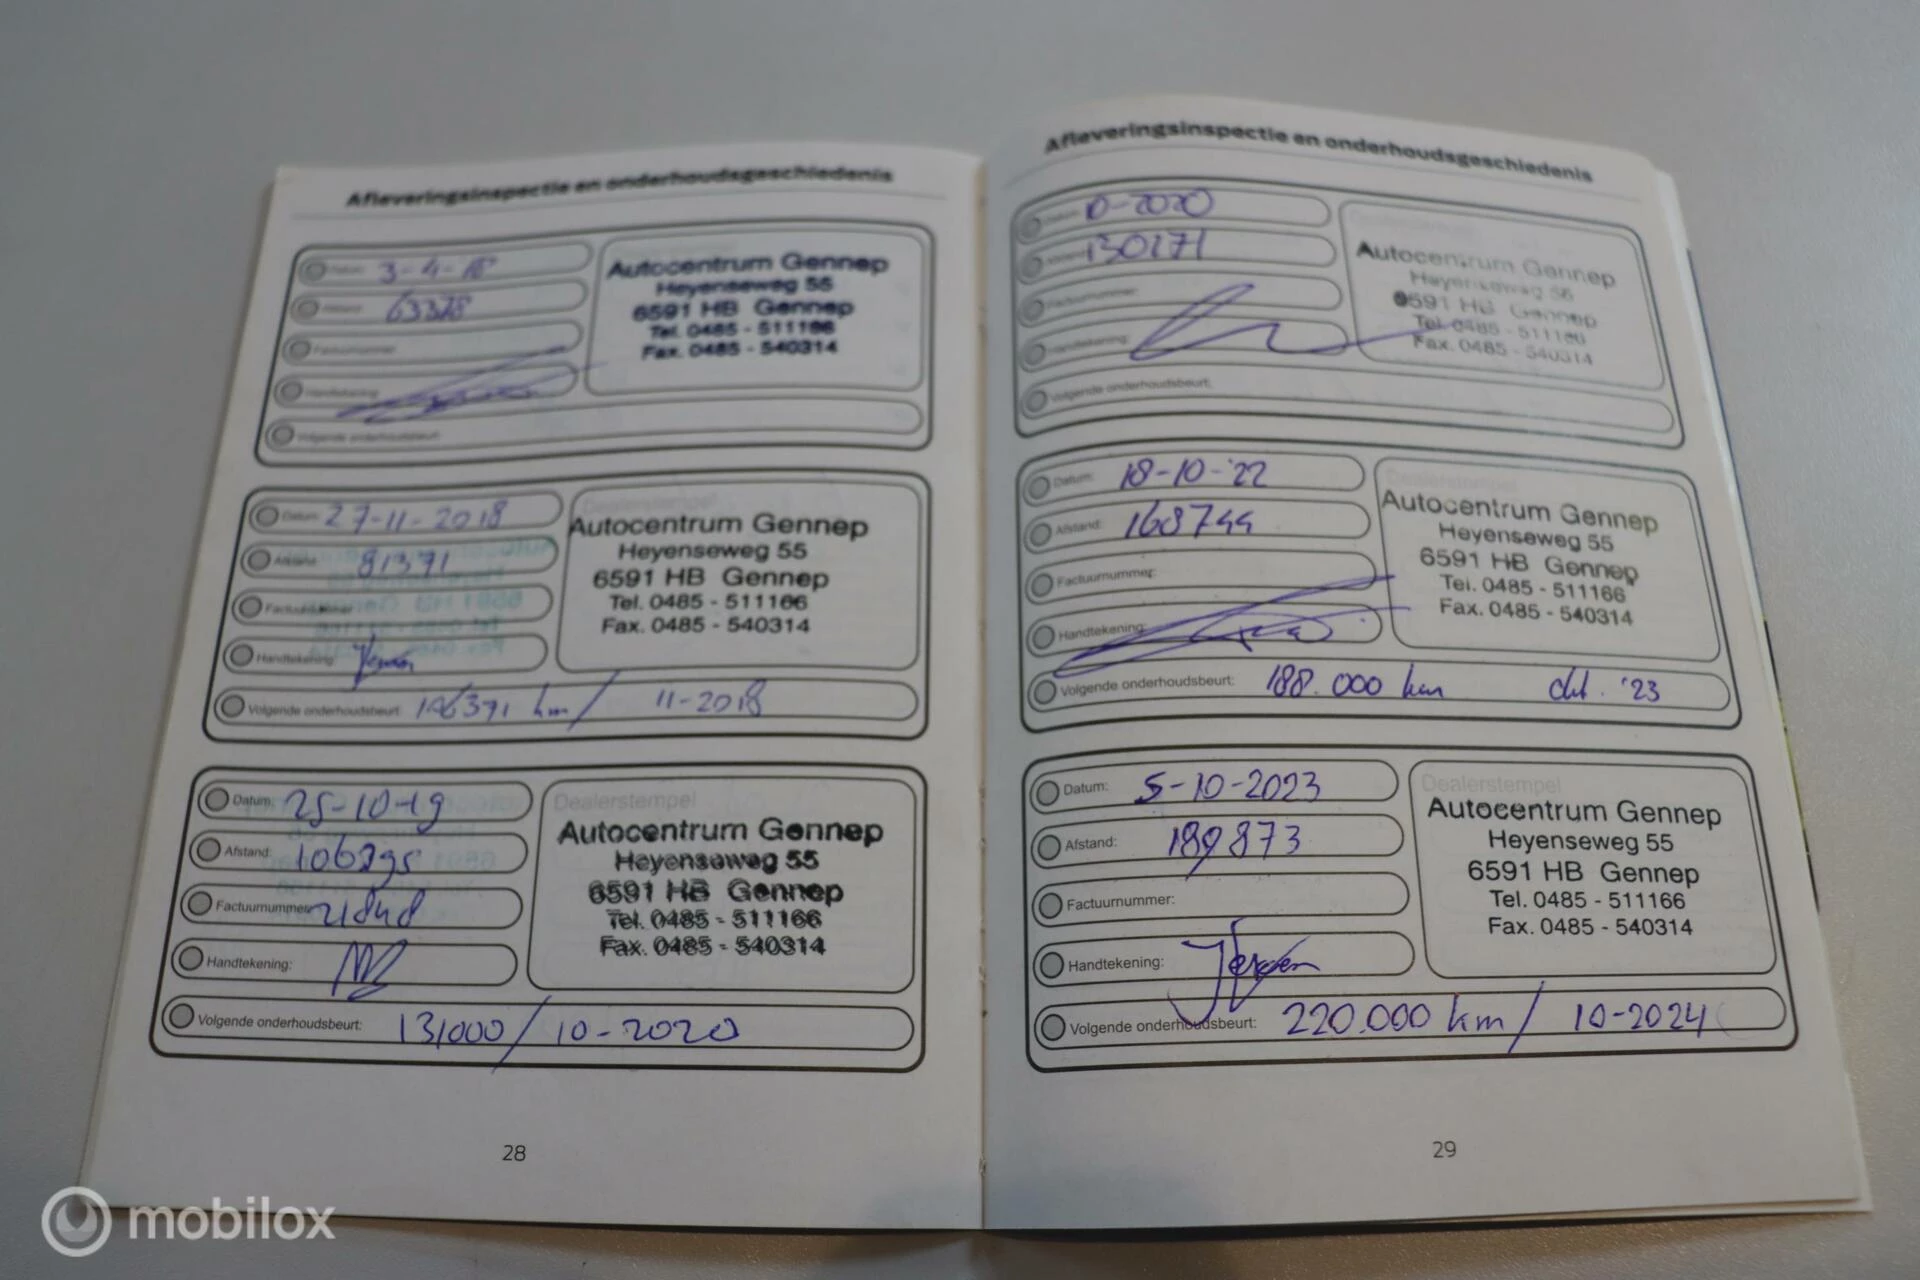 Afleveringsinspectie en onderhoudsgeschiedenis
Datum: 3-4-18
Afstand: 63378
Factuurnummer:
Handtekening:
Volgende onderhoudsbeurt:
Autocentrum Gennep
Heyenseweg 55
6591 HB Gennep
Tel. 0485 - 511166
Fax. 0485 - 540314
Datum: 27-11-2018
Afstand: 81371
Factuurnummer:
Handtekening:
Volgende onderhoudsbeurt: 106371 km / 11-2018
Dealerstempel
Autocentrum Gennep
Heyenseweg 55
6591 HB Gennep
Tel. 0485 - 511166
Fax. 0485 - 540314
Datum: 25-10-19
Afstand: 106295
Factuurnummer:
Handtekening:
Volgende onderhoudsbeurt: 131000 / 10-2020
Dealerstempel
Autocentrum Gennep
Heyenseweg 55
6591 HB Gennep
Tel. 0485 - 511166
Fax. 0485 - 540314
28
Afleveringsinspectie en onderhoudsgeschiedenis
Datum: 10-2020
Afstand: 130171
Factuurnummer:
Handtekening:
Volgende onderhoudsbeurt:
Autocentrum Gennep
Heyenseweg 55
6591 HB Gennep
Tel. 0485 - 511166
Fax. 0485 - 540314
Datum: 18-10-'22
Afstand: 168744
Factuurnummer:
Handtekening:
Volgende onderhoudsbeurt: 188.000 km okt. '23
Dealerstempel
Autocentrum Gennep
Heyenseweg 55
6591 HB Gennep
Tel. 0485 - 511166
Fax. 0485 - 540314
Datum: 5-10-2023
Afstand: 189873
Factuurnummer:
Handtekening: Jeroen
Volgende onderhoudsbeurt: 220.000 km / 10-2024
Dealerstempel
Autocentrum Gennep
Heyenseweg 55
6591 HB Gennep
Tel. 0485 - 511166
Fax. 0485 - 540314
29
mobilox